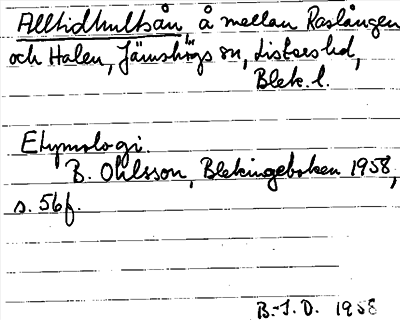 Alltidhultsån, å mellan Raslången
och Halen, Jämshögs sn, Listers hd,
Blek. l.
Etymologi.
B. Ohlsson, Blekingeboken 1958,
s. 56f.
B.-I.D. 1958